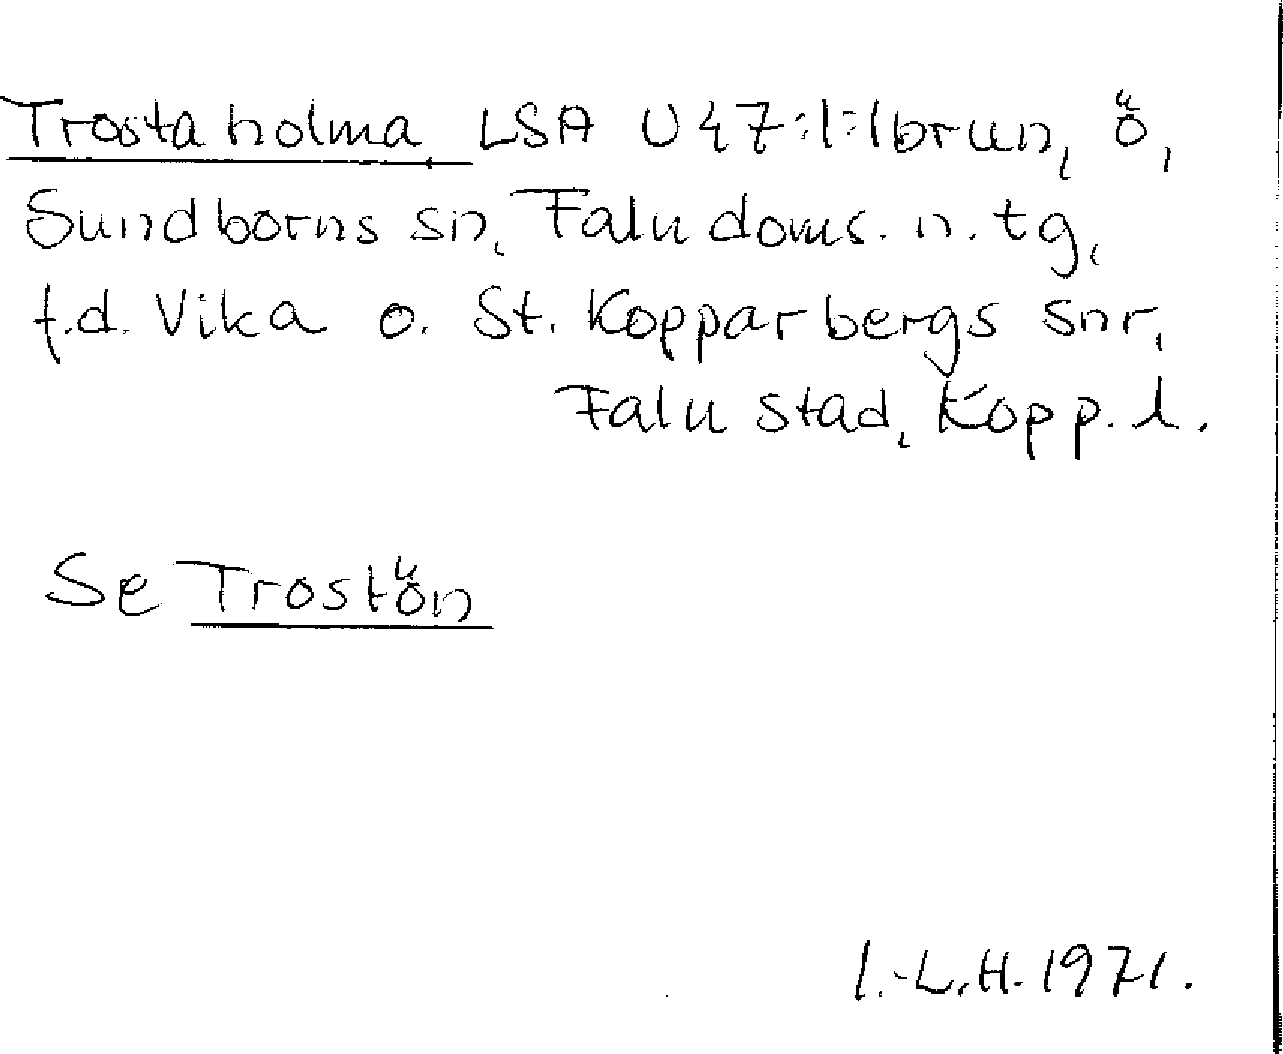 Trostaholma LSA U47:1:1brun, ö,
Sundborns sn, Falu doms. n. tg,
f.d. Vika o. St. Kopparbergs snr,
Falu stad, Kopp. l.
Se Trostön
I.-L.H. 1971.